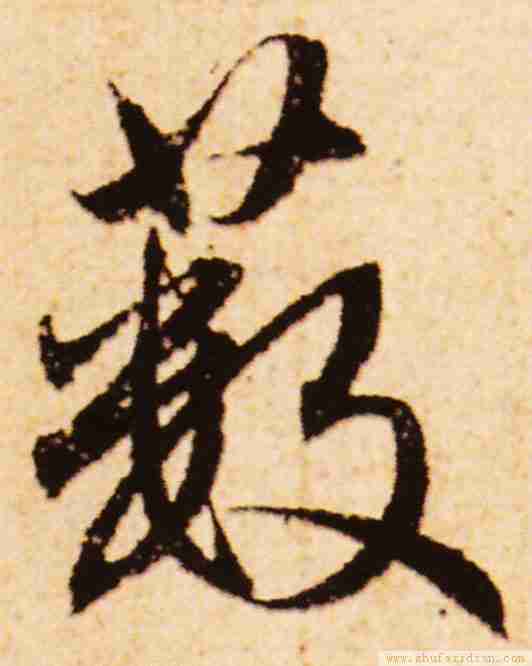 薮
www.shufazidian.com